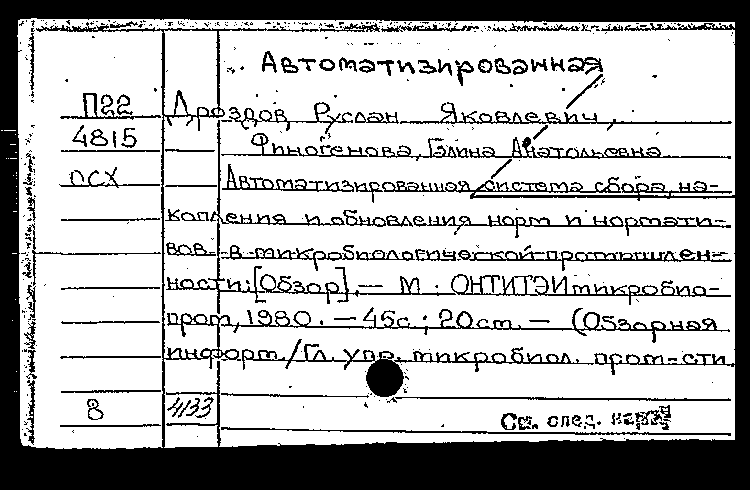 Автоматизированная
П22 Дроздов, Руслан Яковлевич,
4815 Финогенова, Галина Анатольевна
псх Автоматизированная система сбора, на-
копления и обновления норм и нормати-
вов в микробиологической промышлен-
ности: [Обзор]. — М : ОНТИТЭИмикробио-
пром, 1980. — 45с.; 20см. — (Обзорная
информ. / Гл. упр. микробиол. пром-сти
8 4133 См. след. карт